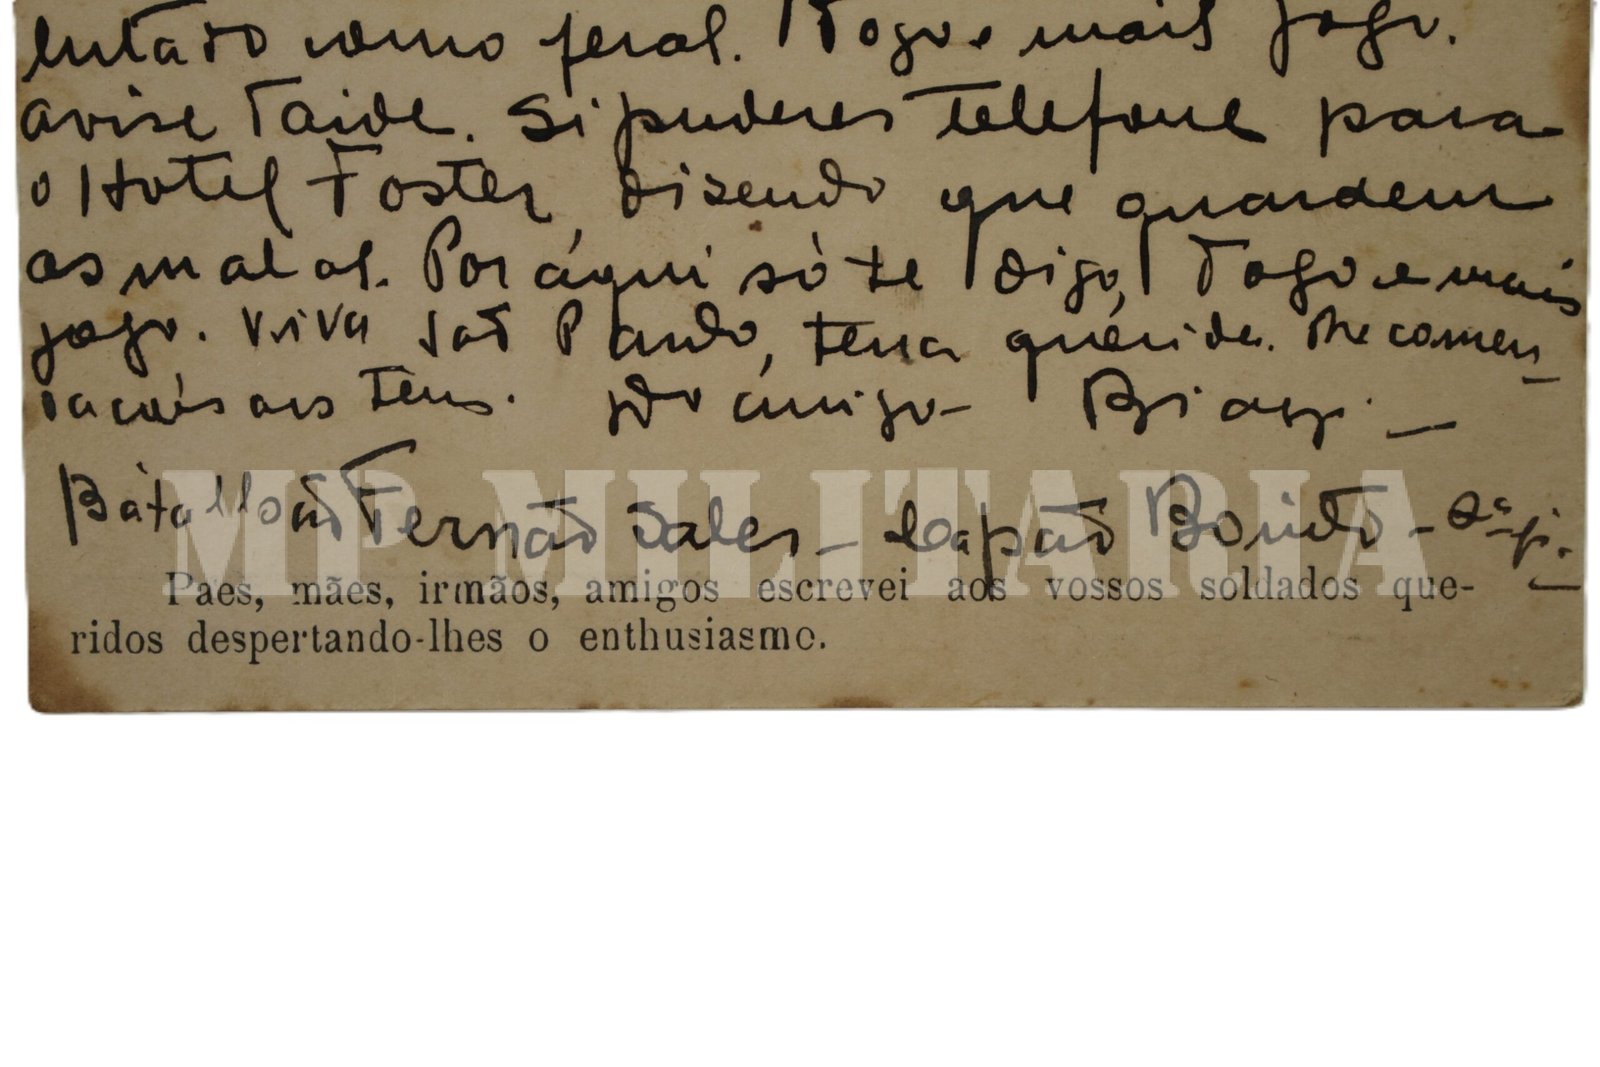 como mais fogo.
avise Taide. Si puderes telefone para
o Hotel Foster, disendo que guardem
as malas. Por áqui só te digo, Fogo e mais
fogo. Viva São Paulo, terra quérida. Recomen
dacoĩs aos teus. do ámigo Biagi.
Bàtalhão Fernão Sales - Capão Bonito - 2ª
MP MILITARIA
Paes, mães, irmãos, amigos escrevei aos vossos soldados que-
ridos despertando-lhes o enthusiasmo.